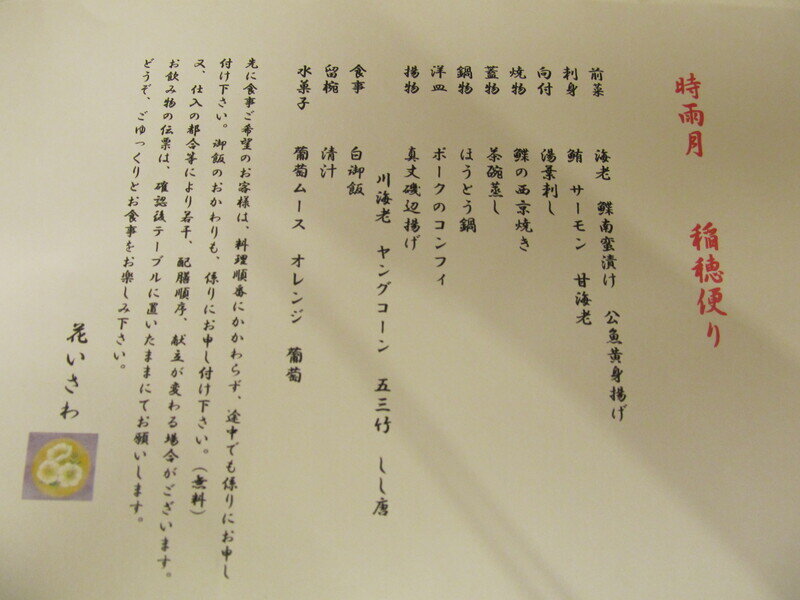 時雨月　稲穂便り
前菜　海老　鰈南蛮漬け　公魚黄身揚げ
刺身　鮪　サーモン　甘海老
向付　湯葉刺し
焼物　鰈の西京焼き
蓋物　茶碗蒸し
鍋物　ほうとう鍋
洋皿　ポークのコンフィ
揚物　真丈磯辺揚げ
川海老　ヤングコーン　五三竹　しし唐
食事　白御飯
留椀　清汁
水菓子　葡萄ムース　オレンジ　葡萄
先に食事ご希望のお客様は、料理順番にかかわらず、途中でも係りにお申し
付け下さい。御飯のおかわりも、係りにお申し付け下さい。(無料)
又、仕入の都合等により若干、配膳順序、献立が変わる場合がございます。
お飲み物の伝票は、確認後テーブルに置いたままにてお願いします。
どうぞ、ごゆっくりとお食事をお楽しみ下さい。
花いさわ